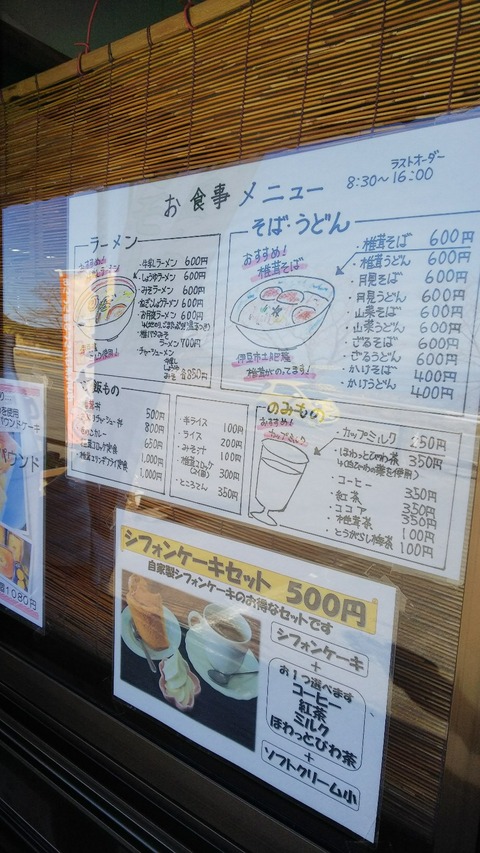 お食事メニュー
ラストオーダー
8:30～16:00
ラーメン
おすすめ!
・牛乳ラーメン 600円
・しょうゆラーメン 600円
・みそラーメン 600円
・ねぎしょうゆラーメン 600円
・お月夜ラーメン 600円
ラーメン 700円
・チャーシューメン
各850円
そば・うどん
おすすめ!
椎茸そば
伊豆市土肥産
椎茸がのってます!
・椎茸そば 600円
・椎茸うどん 600円
・月見そば 600円
・月見うどん 600円
・山菜そば 600円
・山菜うどん 600円
・ざるそば 600円
・ざるうどん 600円
・かけそば 400円
・かけうどん 400円
ご飯もの
500円
800円
カレー 500円
650円
1,000円
1,000円
・半ライス 100円
・ライス 200円
・みそ汁 100円
・椎茸コロッケ(2個) 300円
・ところてん 350円
のみもの
おすすめ!
カップミルク
・カップミルク 150円
・ほわっとびわ茶 350円
・コーヒー 350円
・紅茶 350円
・ココア 350円
・椎茸茶 100円
・とうがらし梅茶 100円
シフォンケーキセット 500円
自家製シフォンケーキのお得なセットです
シフォンケーキ
+
お1つ選べます
コーヒー
紅茶
ミルク
ほわっとびわ茶
+
ソフトクリーム小
を使用
パウンドケーキ
パウンド
1080円